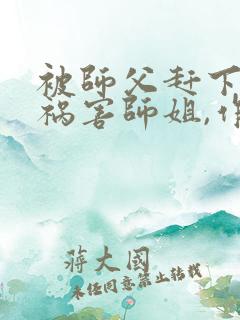 被師父赶下
祸害師姐,
蒋大國
未经同意禁止转载